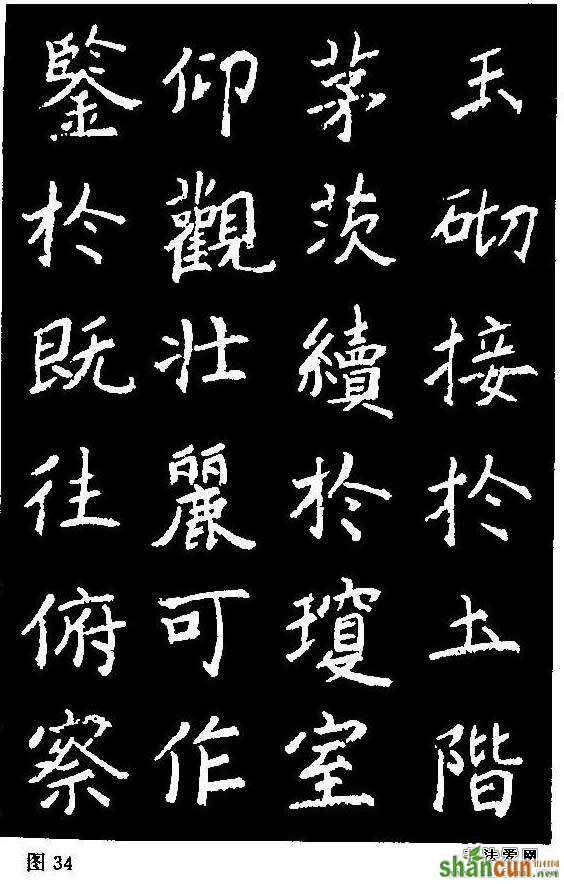 玉砌接於土階
茅茨續於瓊室
仰觀壯麗可作
鑒於既往俯察
图 34
法爱网
shancun
山村网
.net